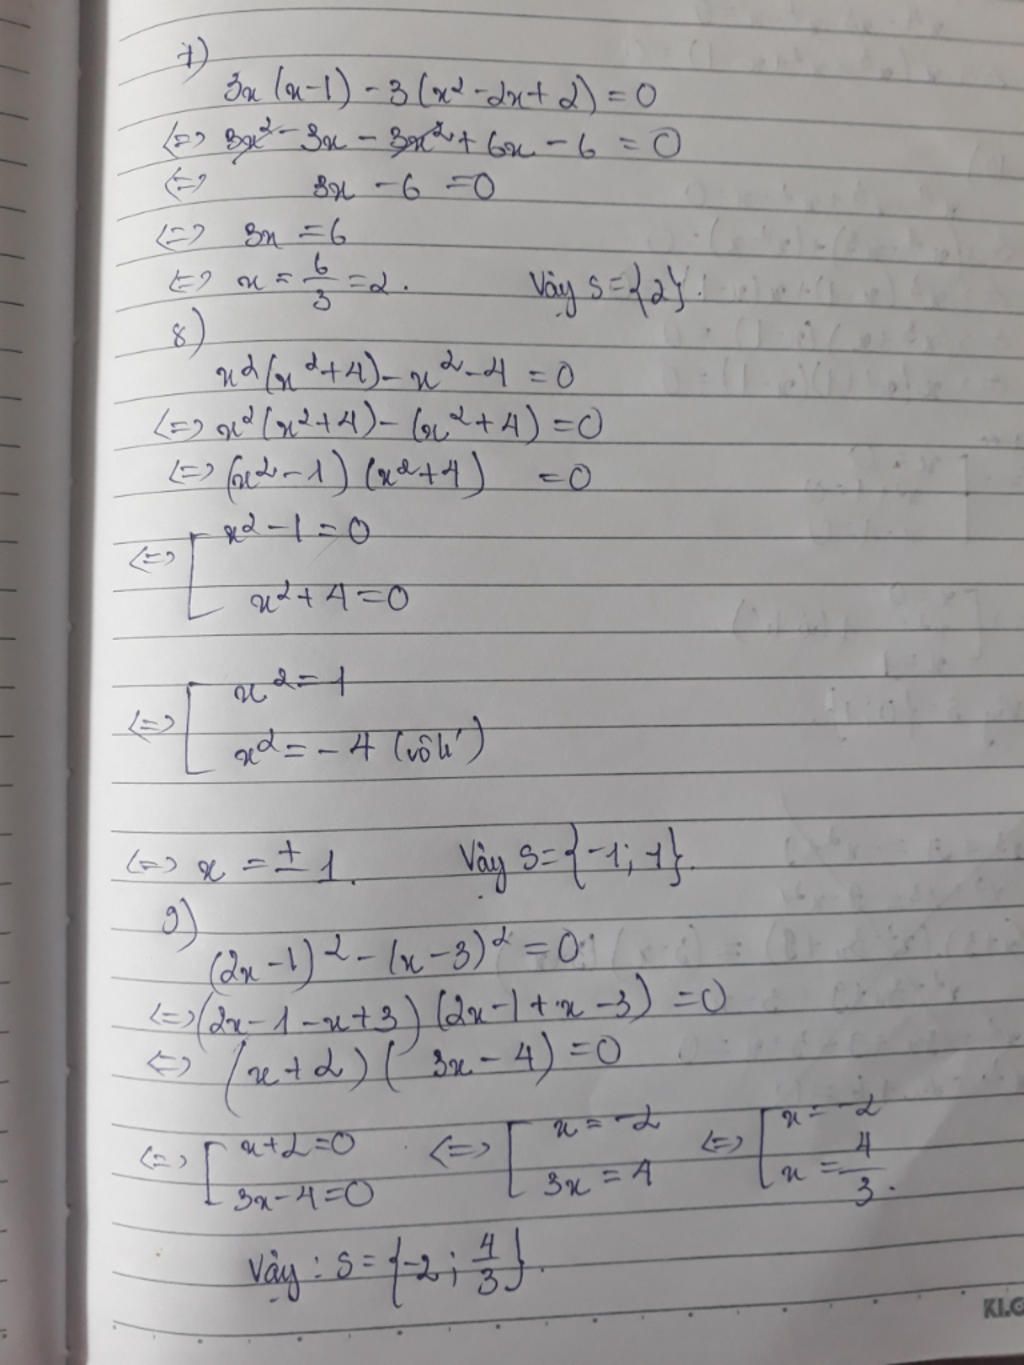 7)
3x(x-1) - 3(x² - 2x + 2) = 0
<=> 3x² - 3x - 3x² + 6x - 6 = 0
<=> 3x - 6 = 0
<=> 3x = 6
<=> x = 6/3 = 2. Vậy S = {2}.
8)
x²(x²+4) - x² - 4 = 0
<=> x²(x²+4) - (x²+4) = 0
<=> (x² - 1)(x²+4) = 0
<=> [ x² - 1 = 0
x² + 4 = 0
<=> [ x² = 1
x² = -4 (vô lí)
<=> x = ± 1. Vậy S = {-1; 1}.
9)
(2x-1)² - (x-3)² = 0
<=> (2x - 1 - x + 3)(2x - 1 + x - 3) = 0
<=> (x+2)(3x-4) = 0
<=> [ x+2 = 0 <=> [ x = -2 <=> [ x = -2
3x - 4 = 0 3x = 4 x = 4/3.
Vậy: S = {-2; 4/3}.
KLO